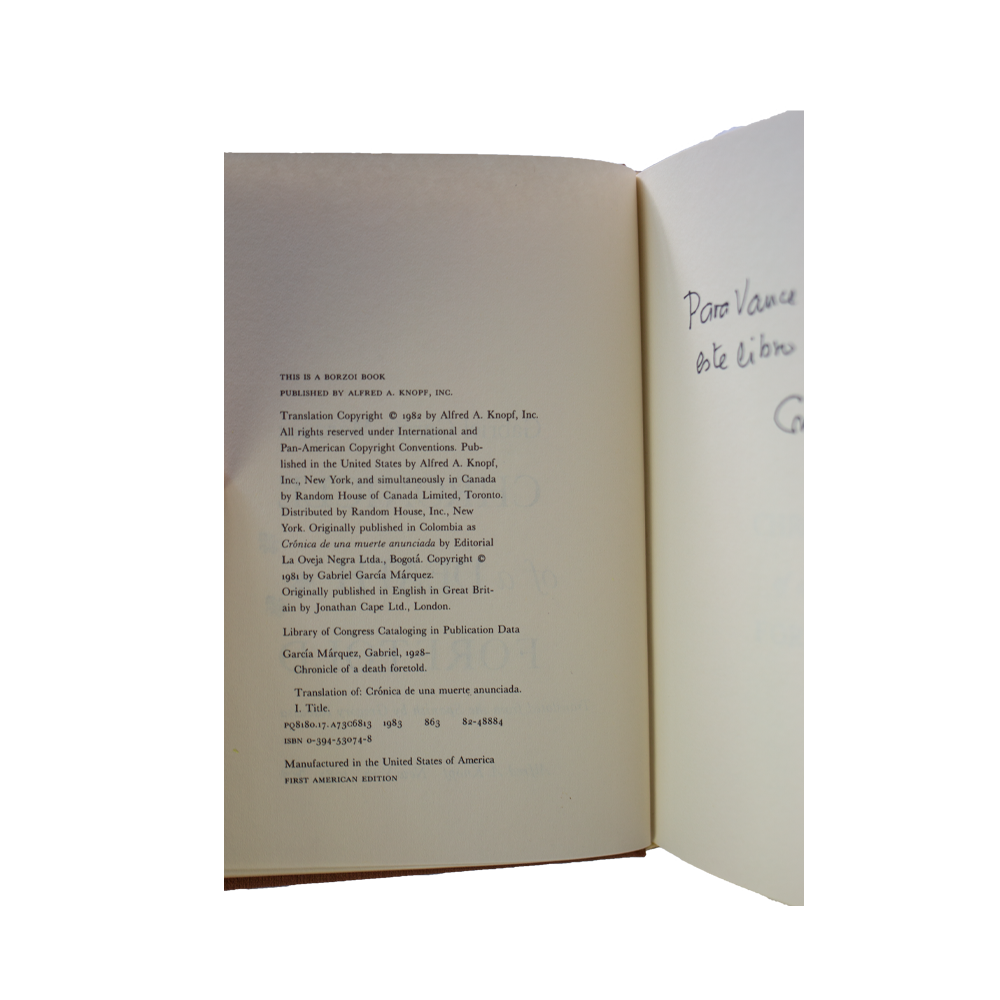 THIS IS A BORZOI BOOK
PUBLISHED BY ALFRED A. KNOPF, INC.
Translation Copyright © 1982 by Alfred A. Knopf, Inc.
All rights reserved under International and
Pan-American Copyright Conventions. Pub-
lished in the United States by Alfred A. Knopf,
Inc., New York, and simultaneously in Canada
by Random House of Canada Limited, Toronto.
Distributed by Random House, Inc., New
York. Originally published in Colombia as
Crónica de una muerte anunciada by Editorial
La Oveja Negra Ltda., Bogotá. Copyright ©
1981 by Gabriel García Márquez.
Originally published in English in Great Brit-
ain by Jonathan Cape Ltd., London.
Library of Congress Cataloging in Publication Data
García Márquez, Gabriel, 1928–
Chronicle of a death foretold.
Translation of: Crónica de una muerte anunciada.
I. Title.
PQ8180.17.A73C6813 1983 863 82-48884
ISBN 0-394-53074-8
Manufactured in the United States of America
FIRST AMERICAN EDITION
Para Vance
este libro